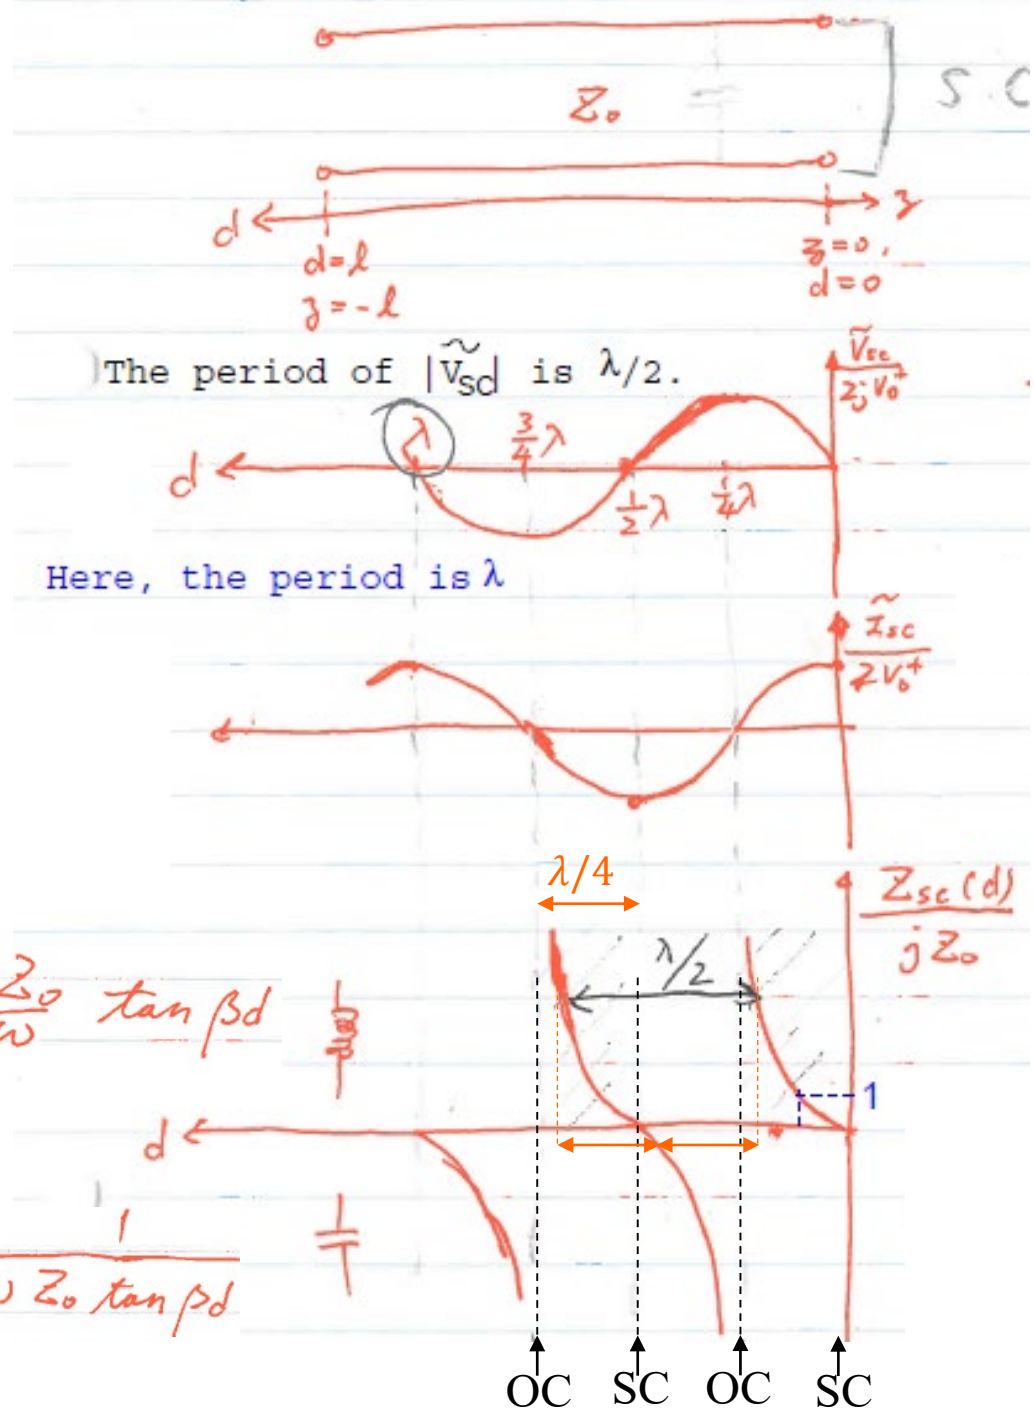 Z₀
S.C
d
z
d=l
z=-l
z=0,
d=0
The period of |Ṽ_SC| is λ/2.
Ṽsc
2jV₀⁺
λ
3/4 λ
d
1/2 λ
1/4 λ
Here, the period is λ
Ĩsc
2V₀⁺
λ/4
Zsc(d)
jZ₀
λ/2
Z₀
ω
tan βd
1
d
1
Z₀ tan βd
OC SC OC SC